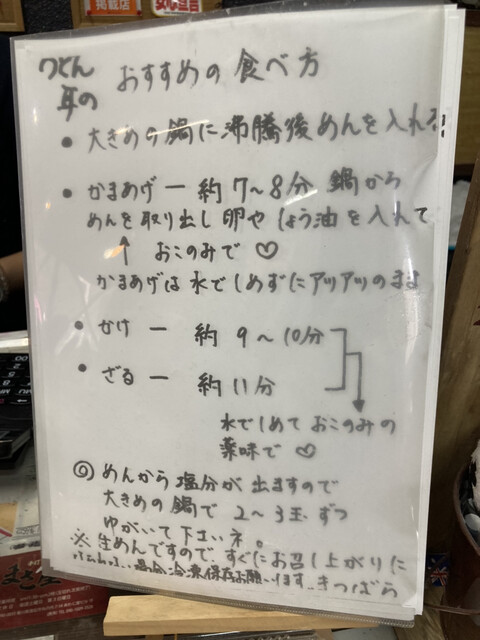 掲載店
うどん おすすめの食べ方
年の
• 大きめの鍋に沸騰後めんを入れる
• かまあげ ー 約7~8分 鍋から
めんを取り出し卵やしょう油を入れて
↑ おこのみで ♡
かまあげは水でしめずにアツアツのまま
• かけ ー 約 9~10分
• ざる ー 約 11分
水でしめて おこのみの
薬味で ♡
◎ めんから 塩分が 出ますので
大きめの鍋で 2~3玉 ずつ
ゆがいて下さいネ。
※ 生めんですので、すぐにお召し上がりに
冷凍保存お願います。きつばら